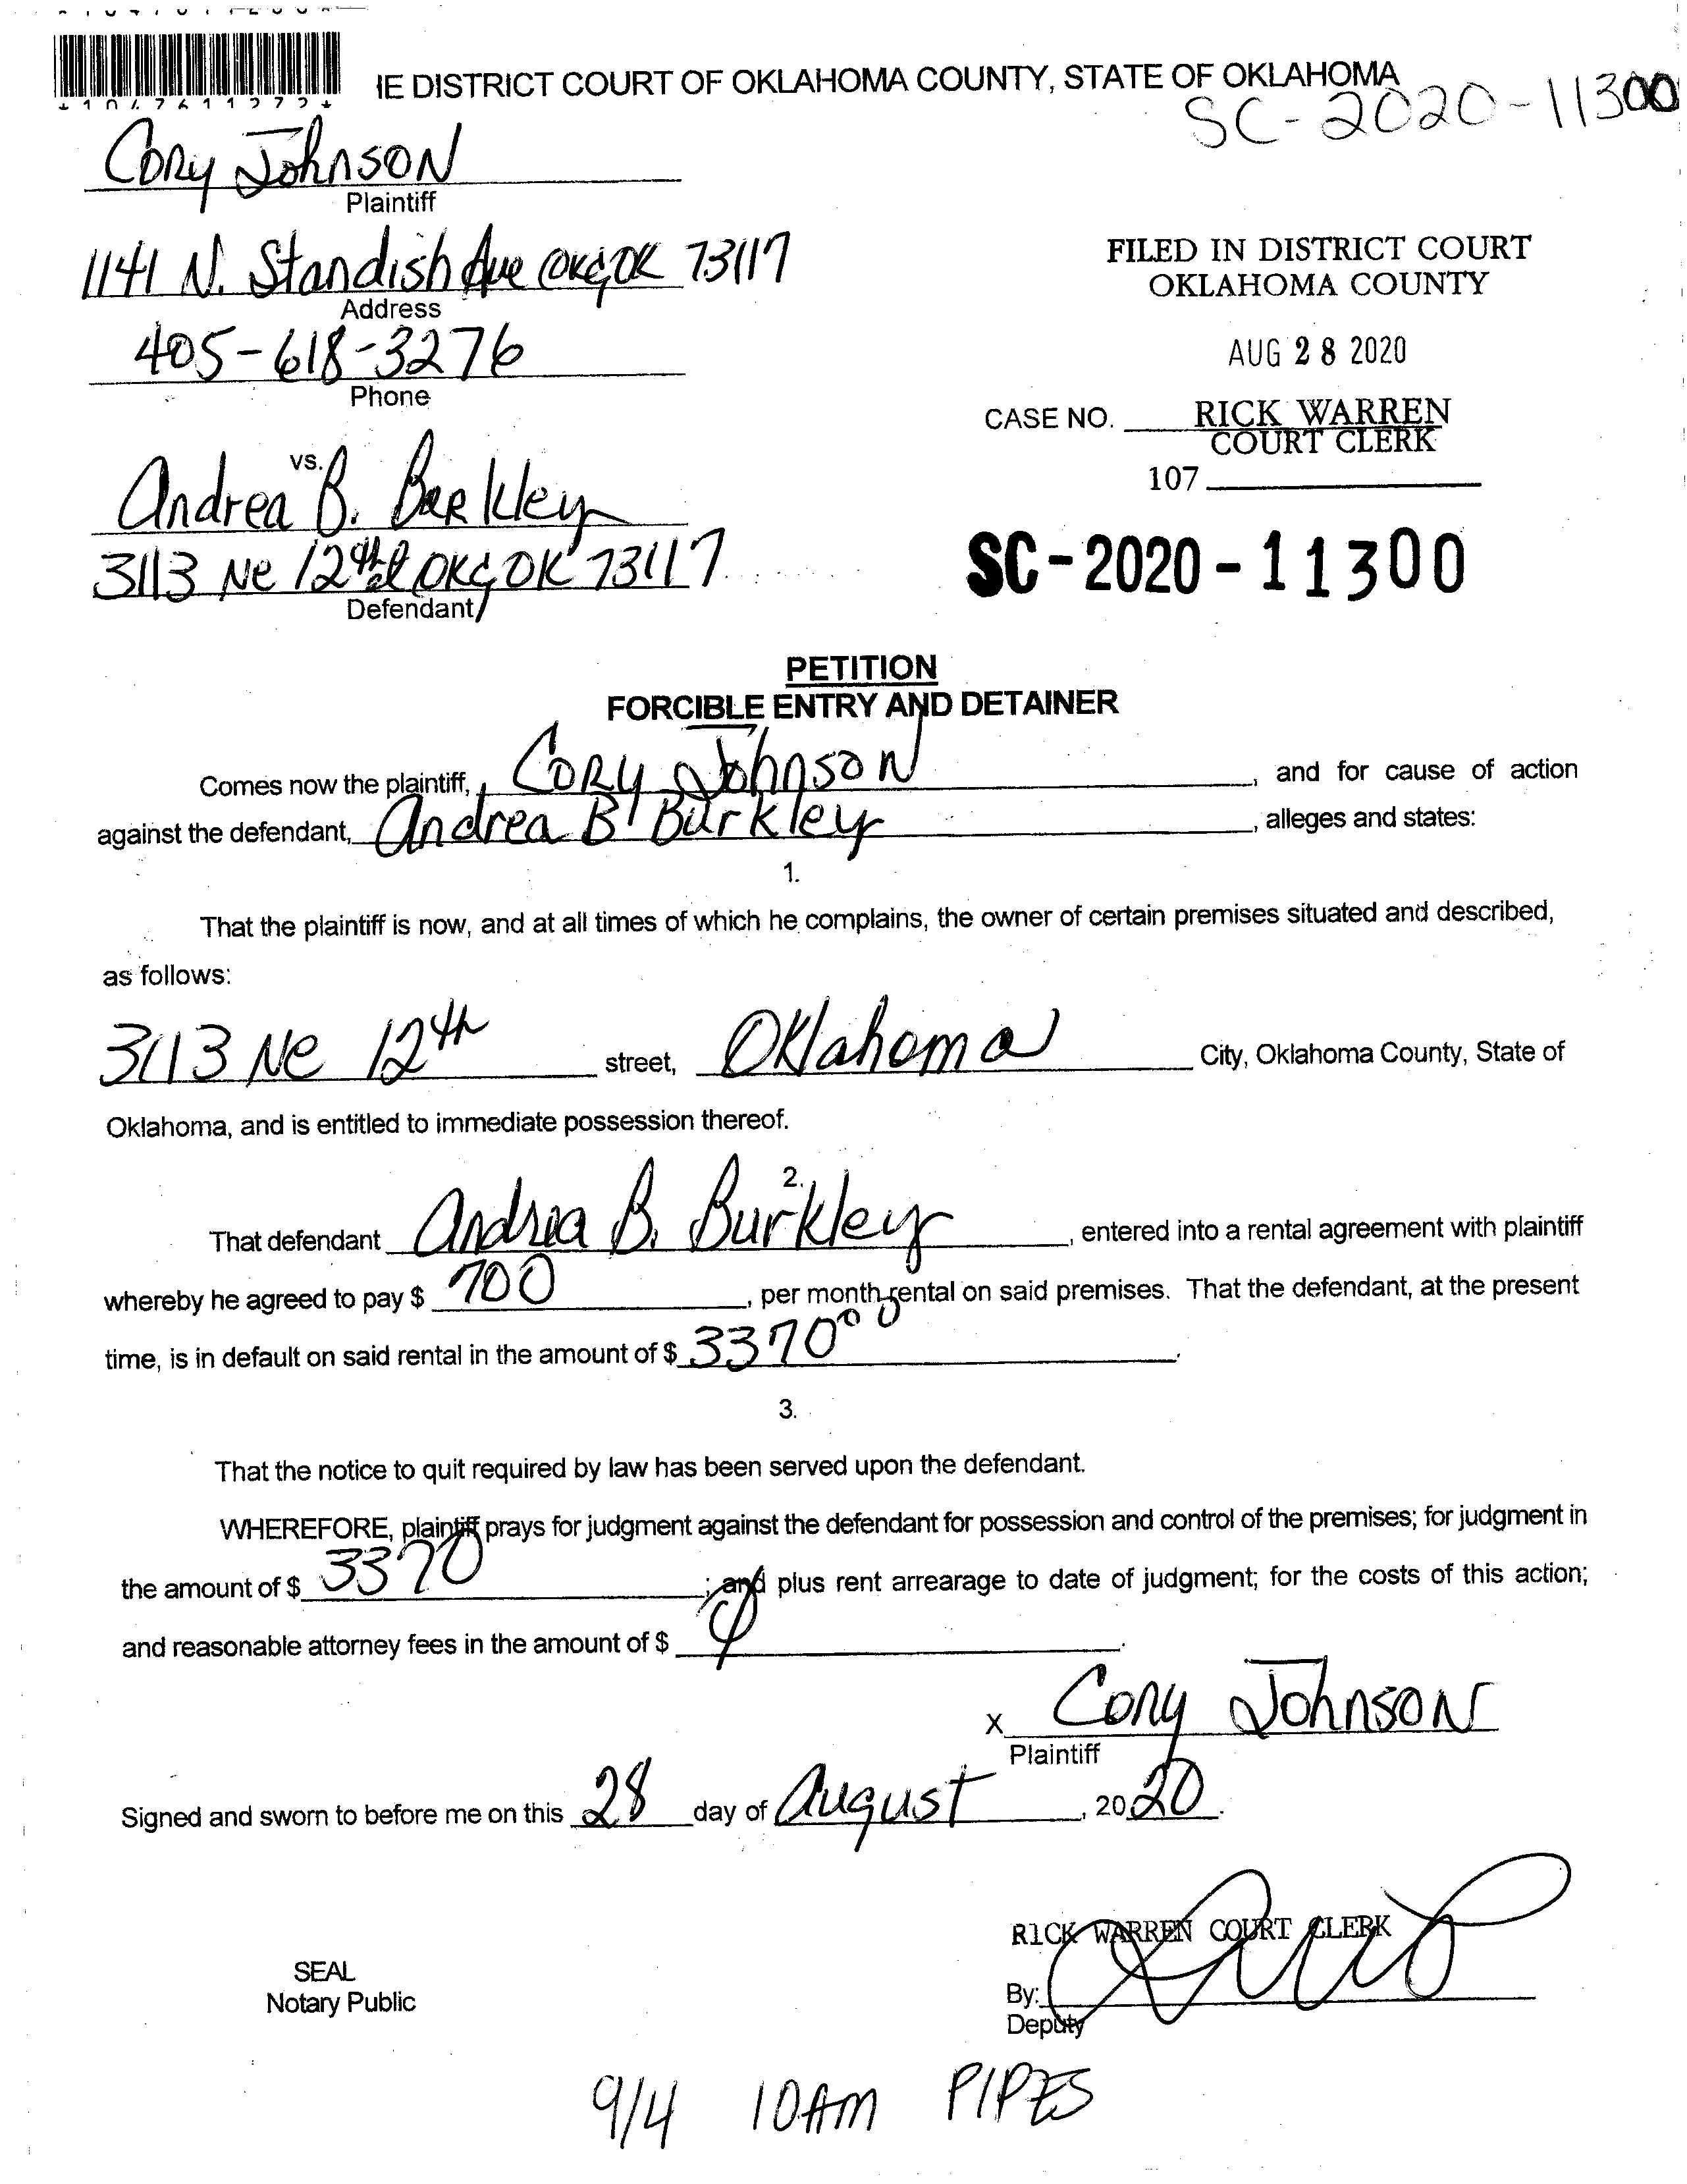 *1047611272*
IE DISTRICT COURT OF OKLAHOMA COUNTY, STATE OF OKLAHOMA
SC-2020-11300
Cory Johnson
Plaintiff
1141 N. Standish Ave OKC, OK 73117
Address
FILED IN DISTRICT COURT
OKLAHOMA COUNTY
405-618-3276
Phone
AUG 28 2020
CASE NO. RICK WARREN
COURT CLERK
107
vs.
Andrea B. Barkley
3113 Ne 12th st OKC, OK 73117
Defendant
SC-2020-11300
PETITION
FORCIBLE ENTRY AND DETAINER
Comes now the plaintiff, Cory Johnson, and for cause of action
against the defendant, Andrea B Burkley, alleges and states:
1.
That the plaintiff is now, and at all times of which he complains, the owner of certain premises situated and described,
as follows:
3113 Ne 12th street, Oklahoma City, Oklahoma County, State of
Oklahoma, and is entitled to immediate possession thereof.
2.
That defendant Andrea B. Burkley, entered into a rental agreement with plaintiff
whereby he agreed to pay $ 700, per month rental on said premises. That the defendant, at the present
time, is in default on said rental in the amount of $ 3370 00.
3.
That the notice to quit required by law has been served upon the defendant.
WHEREFORE, plaintiff prays for judgment against the defendant for possession and control of the premises; for judgment in
the amount of $ 3370; and plus rent arrearage to date of judgment; for the costs of this action;
and reasonable attorney fees in the amount of $
x Cory Johnson
Plaintiff
Signed and sworn to before me on this 28 day of August, 2020.
RICK WARREN COURT CLERK
SEAL
Notary Public
By:
Deputy
9/4 10AM PIPES